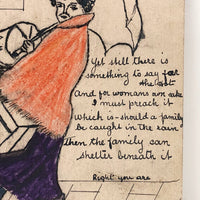 Yet still there is
something to say for
the hat
And for womans own sake
I must preach it
Which is - should a family
be caught in the rain
Then the family can
shelter beneath it
Right you are